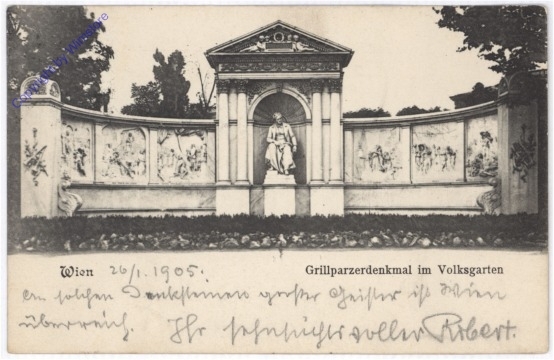 Wien 26/1. 1905. Grillparzerdenkmal im Volksgarten
An solchen Denksteinen großer Geister ist Wien
überreich. Ihr sehnsüchtsvoller Robert.